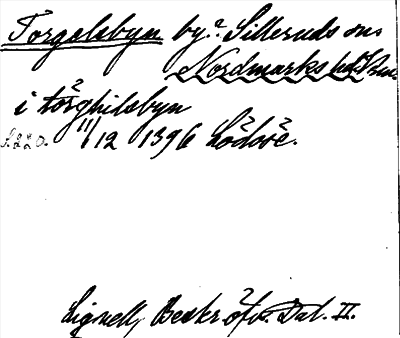 Torgelsbyn by. Silleruds sn
Nordmarks hd Vrm.
i torghilsbyn
s. 220. 11/12 1396 Lödose.
Lignell, Beskr öfv. Dal. II.